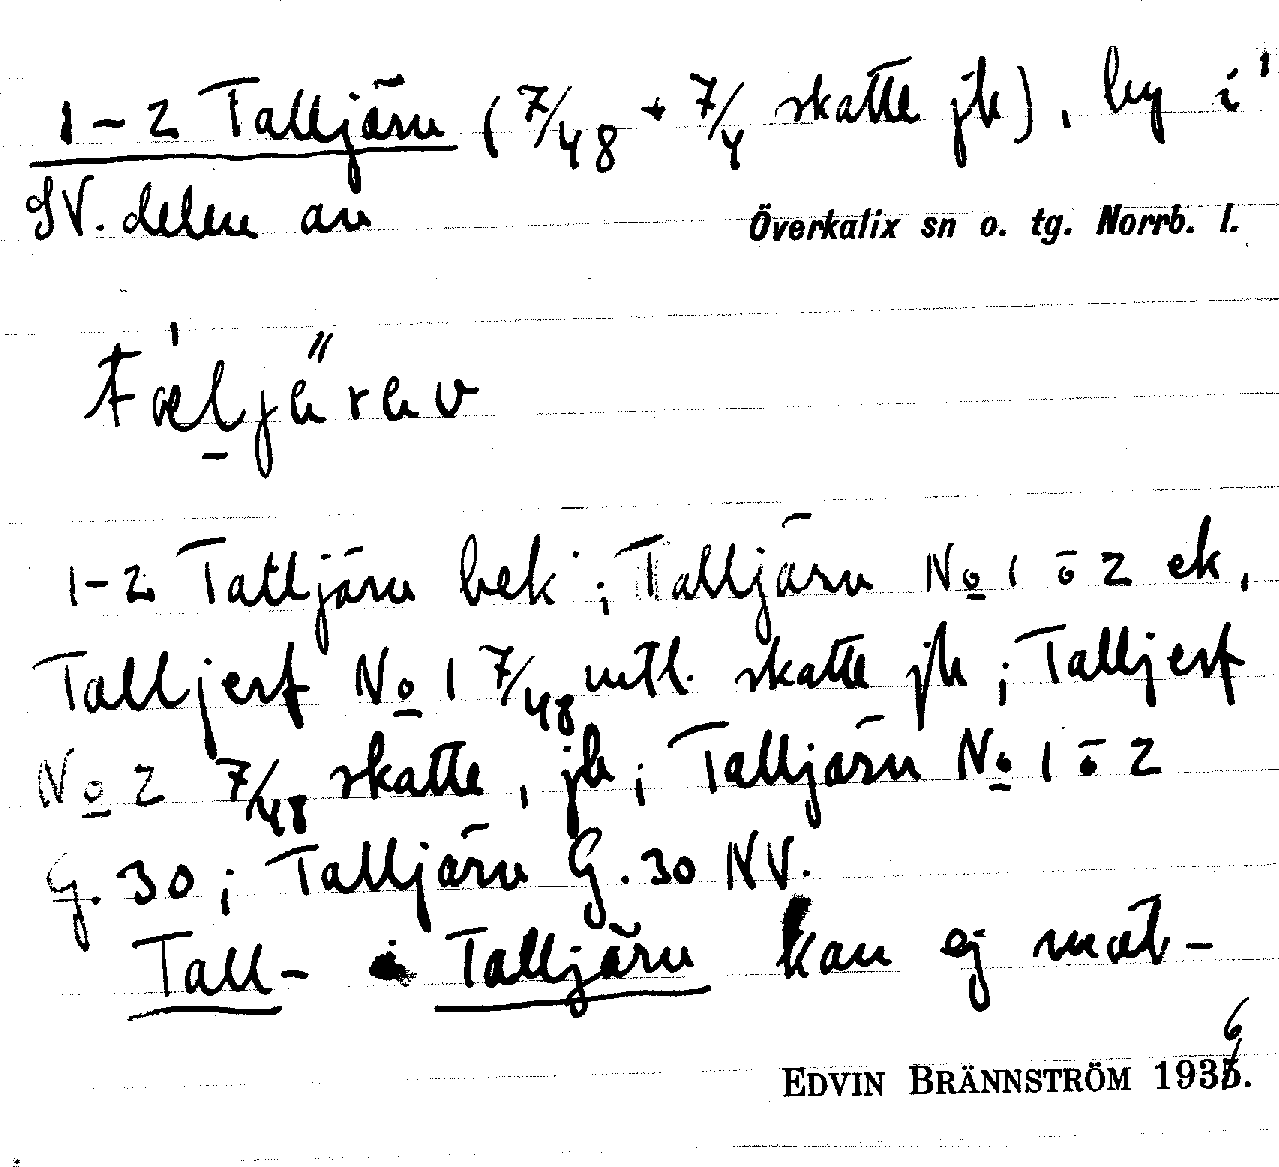 1-2 Talljärv (7/48 + 7/4 skatte jk), by i
SV. delen av
Överkalix sn o. tg. Norrb. l.
1-2 Talljärv bek; Talljärv No 1 o 2 ek,
Talljerf No 1 7/48 mtl. skatte jk; Talljerf
No 2 7/48 skatte, jk; Talljärv No 1 o 2
G. 30; Talljärv G. 30 NV.
Tall- i Talljärv kan ej mot-
EDVIN BRÄNNSTRÖM 1936.